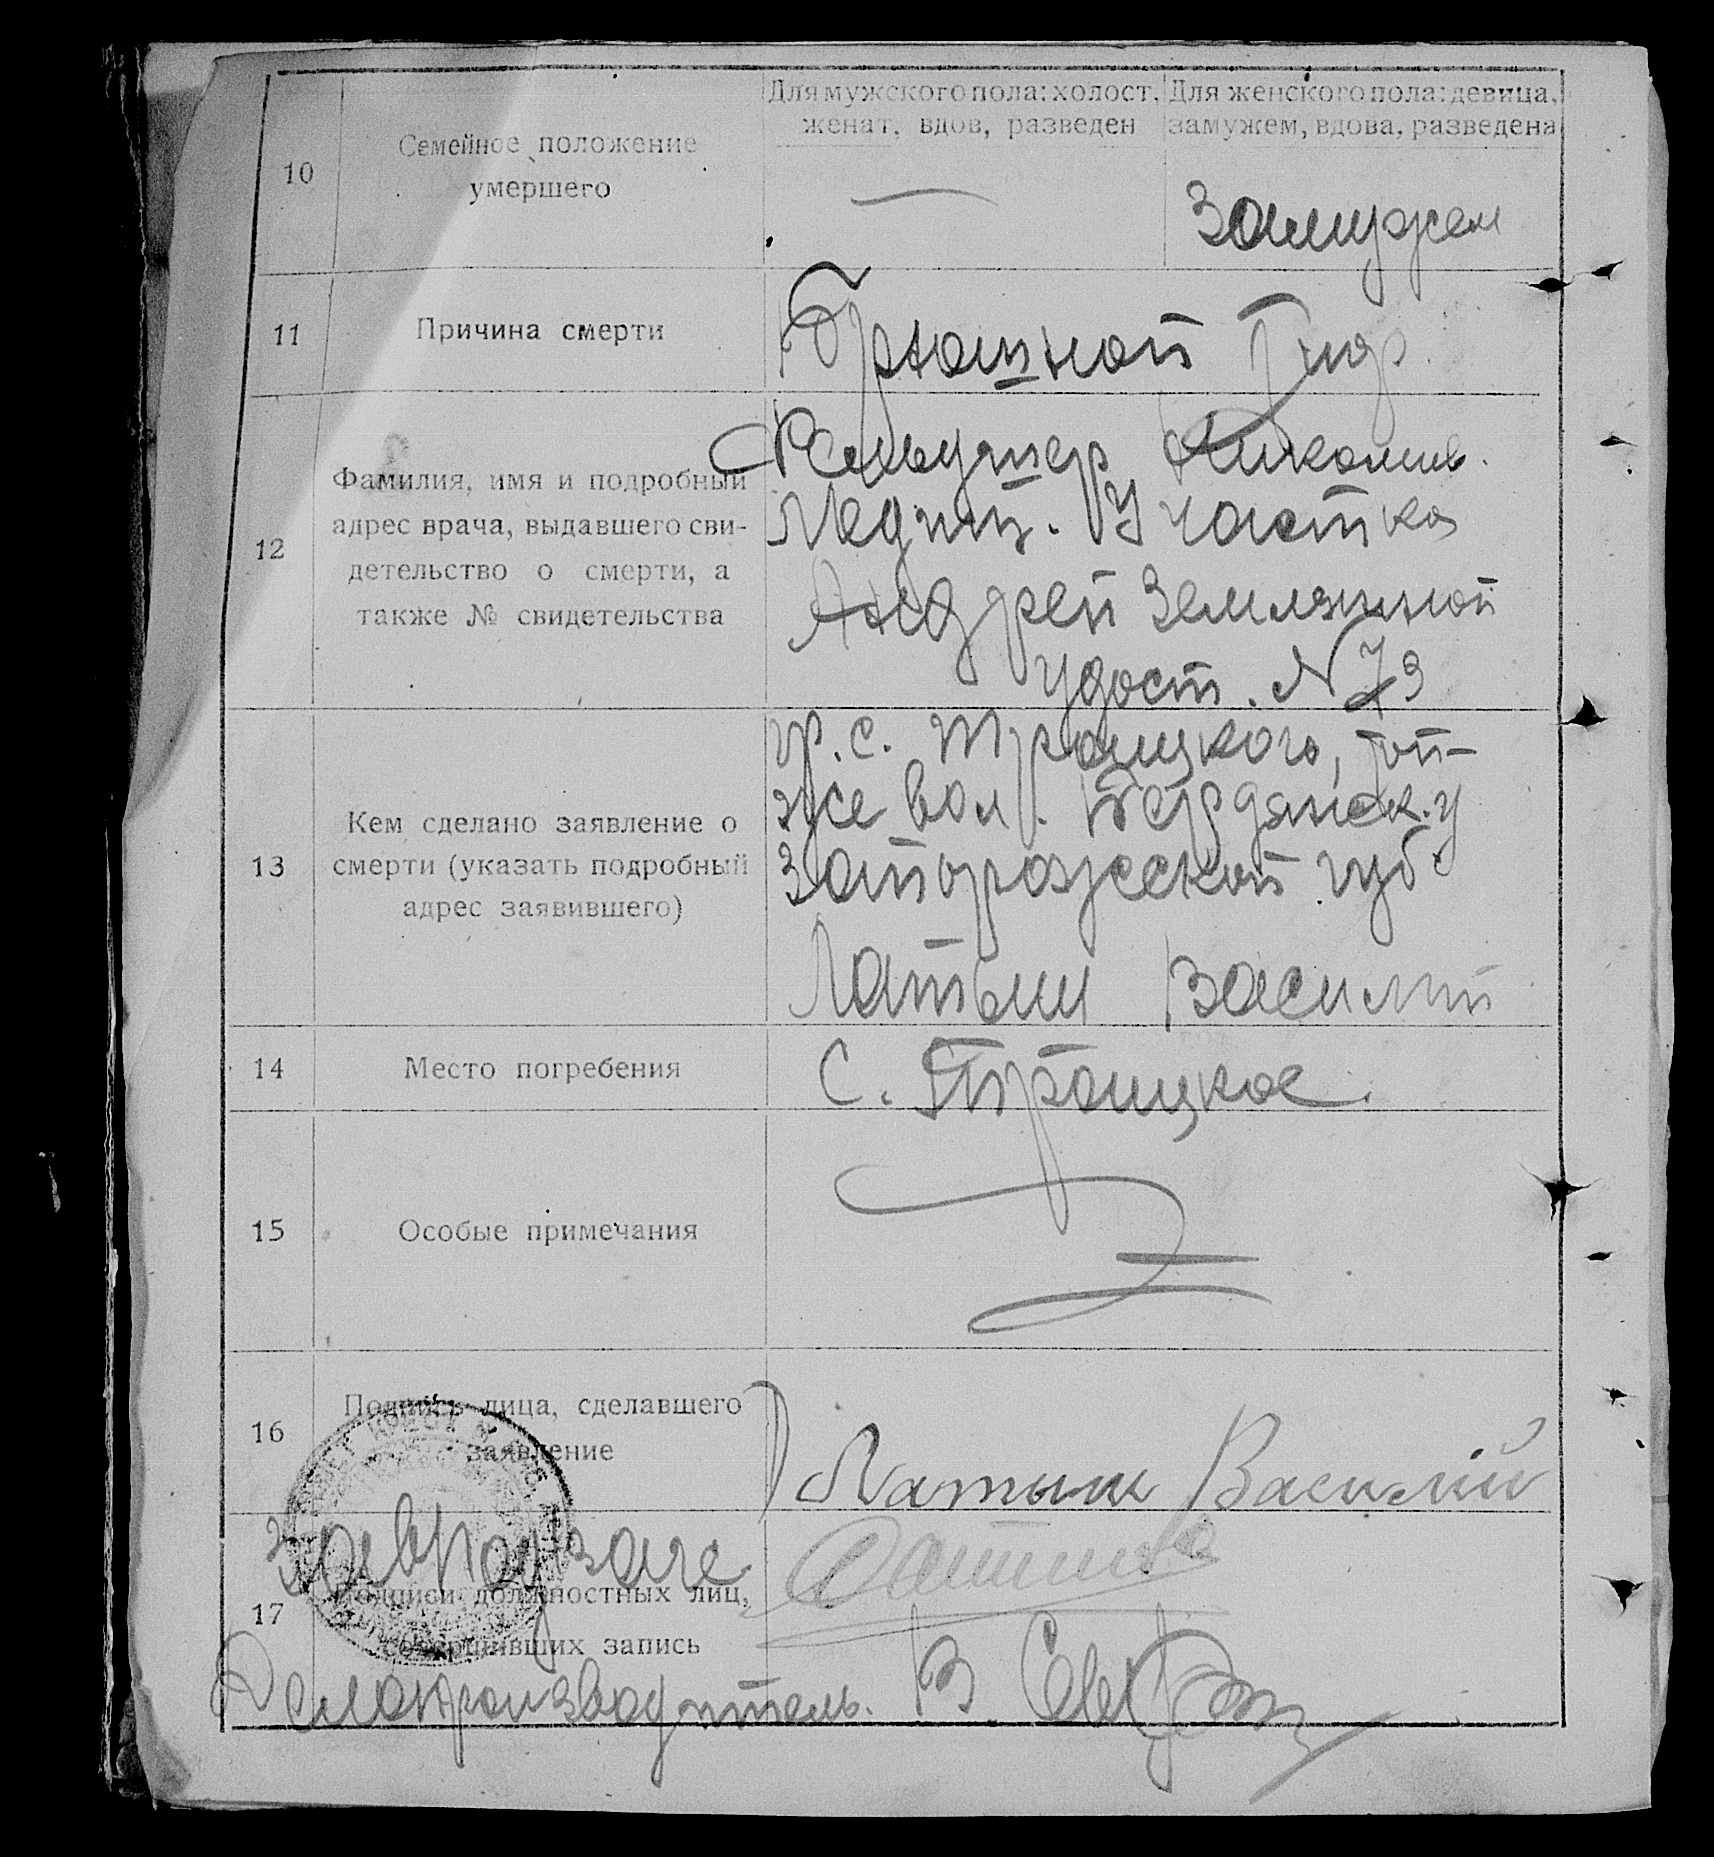 10
Семейное положение
умершего
Для мужского пола: холост,
женат, вдов, разведен
Для женского пола: девица,
замужем, вдова, разведена
Замужем
11
Причина смерти
Брюшной Тиф.
12
Фамилия, имя и подробный
адрес врача, выдавшего сви-
детельство о смерти, а
также № свидетельства
Фельдшер Николаев.
Медиц. Участка
Андрей Земляной
удост. № 73
13
Кем сделано заявление о
смерти (указать подробный
адрес заявившего)
гр. с. Троицкого, той-
же вол. Бердянск. у
Запорожской губ.
Латыш Василий
14
Место погребения
С. Троицкое.
15
Особые примечания
16
Подпись лица, сделавшего
заявление
Латыш Василий
17
Завподзагс
Подписи должностных лиц,
совершивших запись
Делопроизводитель. В.